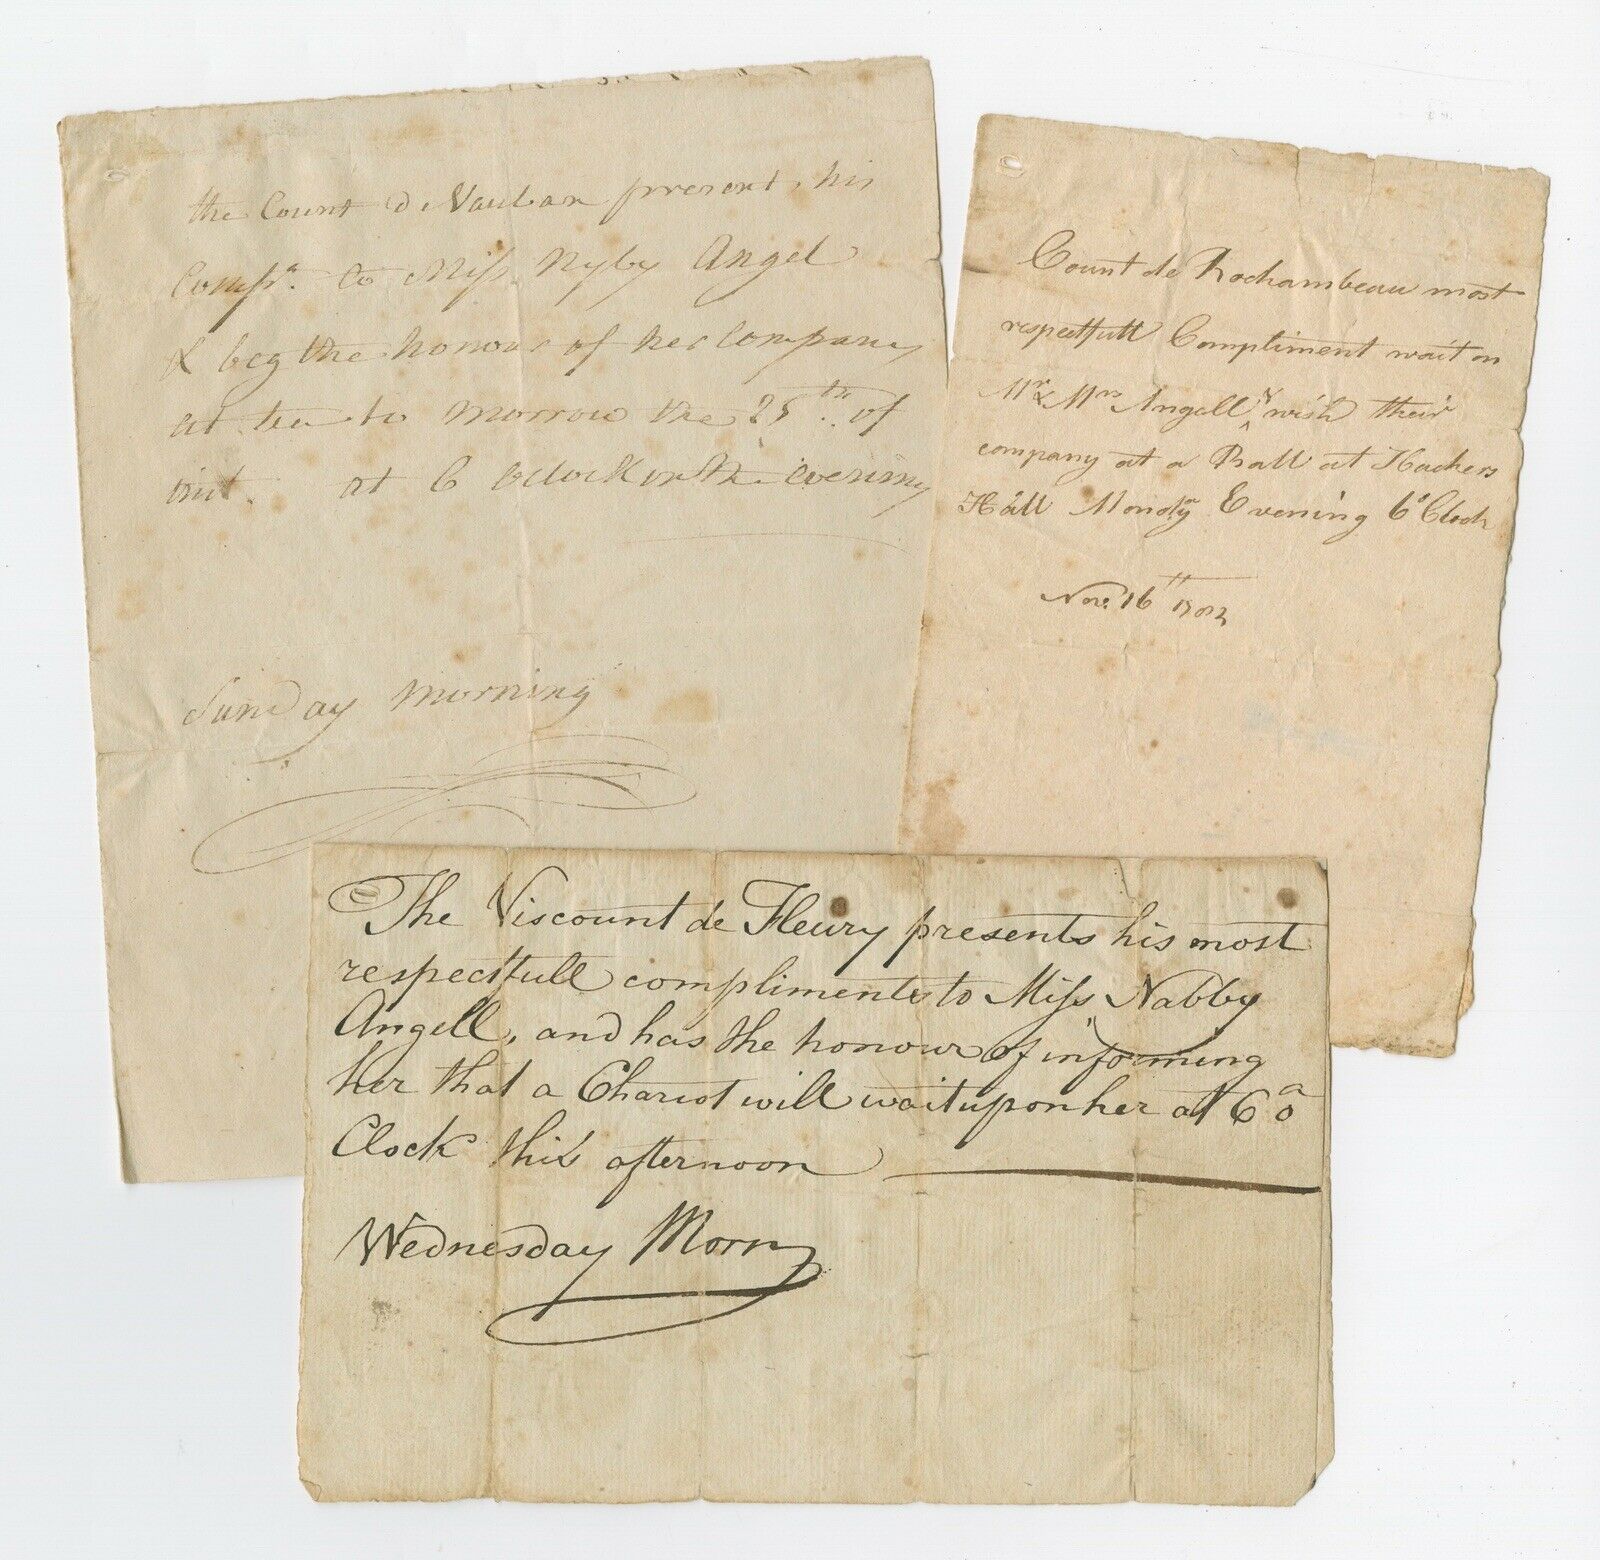 the Count de Vauban present his
Comps. to Miss Nyby Angel
& beg the honour of her Company
at tea to morrow the 25th. of
inst. at 6 oclock in the evening
Sunday Morning
Count de Rochambeau most
respectfull Compliment wait on
Mr & Mrs Angell & wish their
company at a Ball at Hackers
Hall Monday Evening 6 o Clock
Nov. 16th
The Viscount de Fleury presents his most
respectfull compliments to Miss Nabby
Angell, and has the honour of informing
her that a Chariot will wait upon her at 6 o
Clock this afternoon
Wednesday Morn